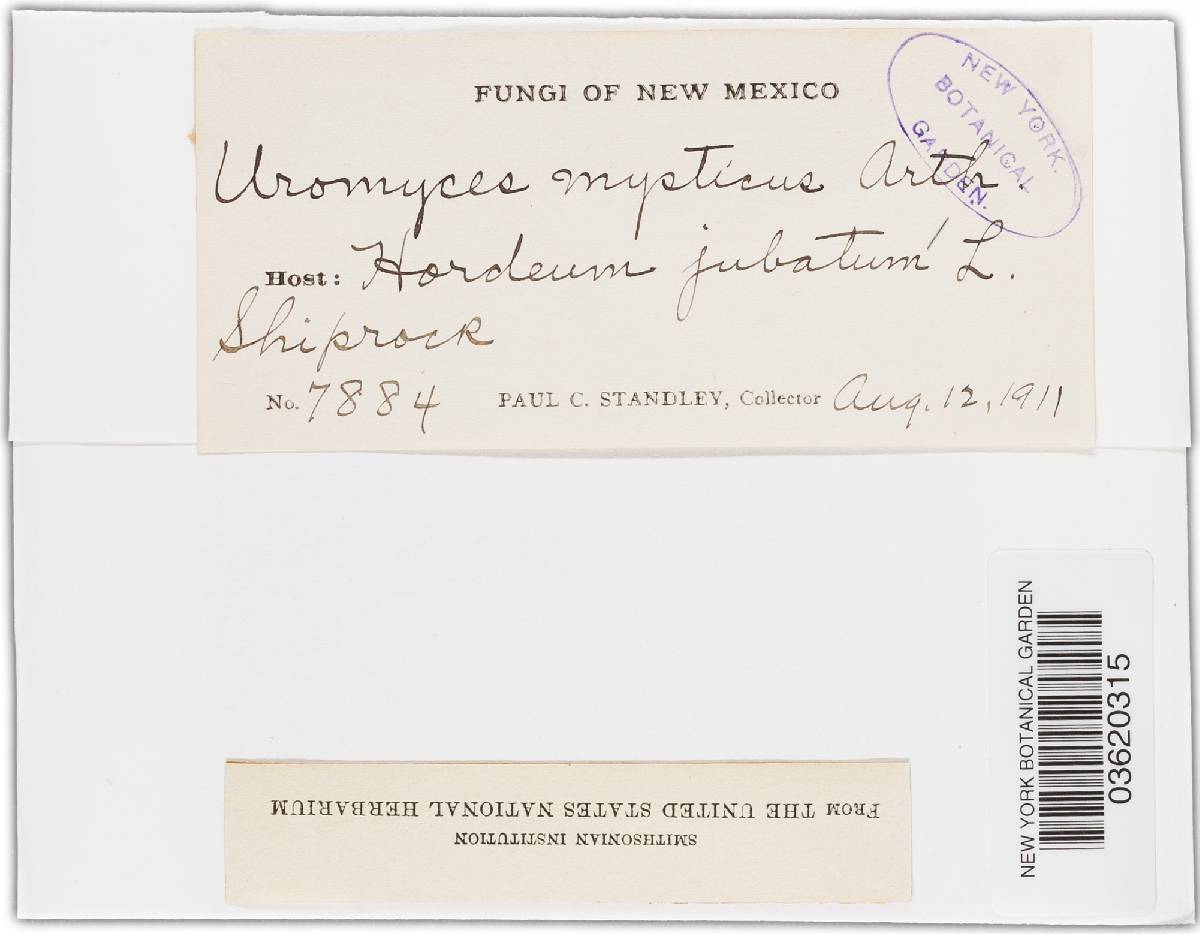 FUNGI OF NEW MEXICO
NEW YORK
BOTANICAL
GARDEN.
Uromyces mysticus Arth.
Host: Hordeum jubatum L.
Shiprock
No. 7884 PAUL C. STANDLEY, Collector Aug. 12, 1911
NEW YORK BOTANICAL GARDEN
03620315
SMITHSONIAN INSTITUTION
FROM THE UNITED STATES NATIONAL HERBARIUM